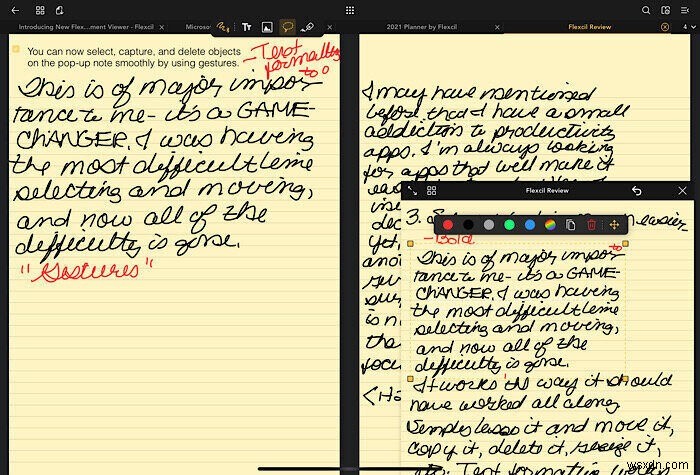 Introducing New Flex...ment Viewer - Flexcil
Microso
Tт
2021 Planner by Flexcil
Flexcil Review
4
You can now select, capture, and delete objects
on the pop-up note smoothly by using gestures.
- Text
formatting
too
This is of major impor
tance to me - it's a GAME-
CHANGER. I was having
the most difficult time
selecting and moving,
and now all of the
difficulty is gone.
"Gestures"
I may have mentioned
before that I have a small
addiction to productivity
apps. I'm always looking
for apps that will make it
Flexcil Review
3.
easier
- Bold
to
This is of major impor
tance to me - it's a GAME-
CHANGER. I was having
the most difficult time
selecting and moving,
and now all of the
difficulty is gone.
It works the way it should
have worked all along
Simply lasso it and move it,
copy it, delete it, resize it,
etc. Text formatting works
wsxdn.com